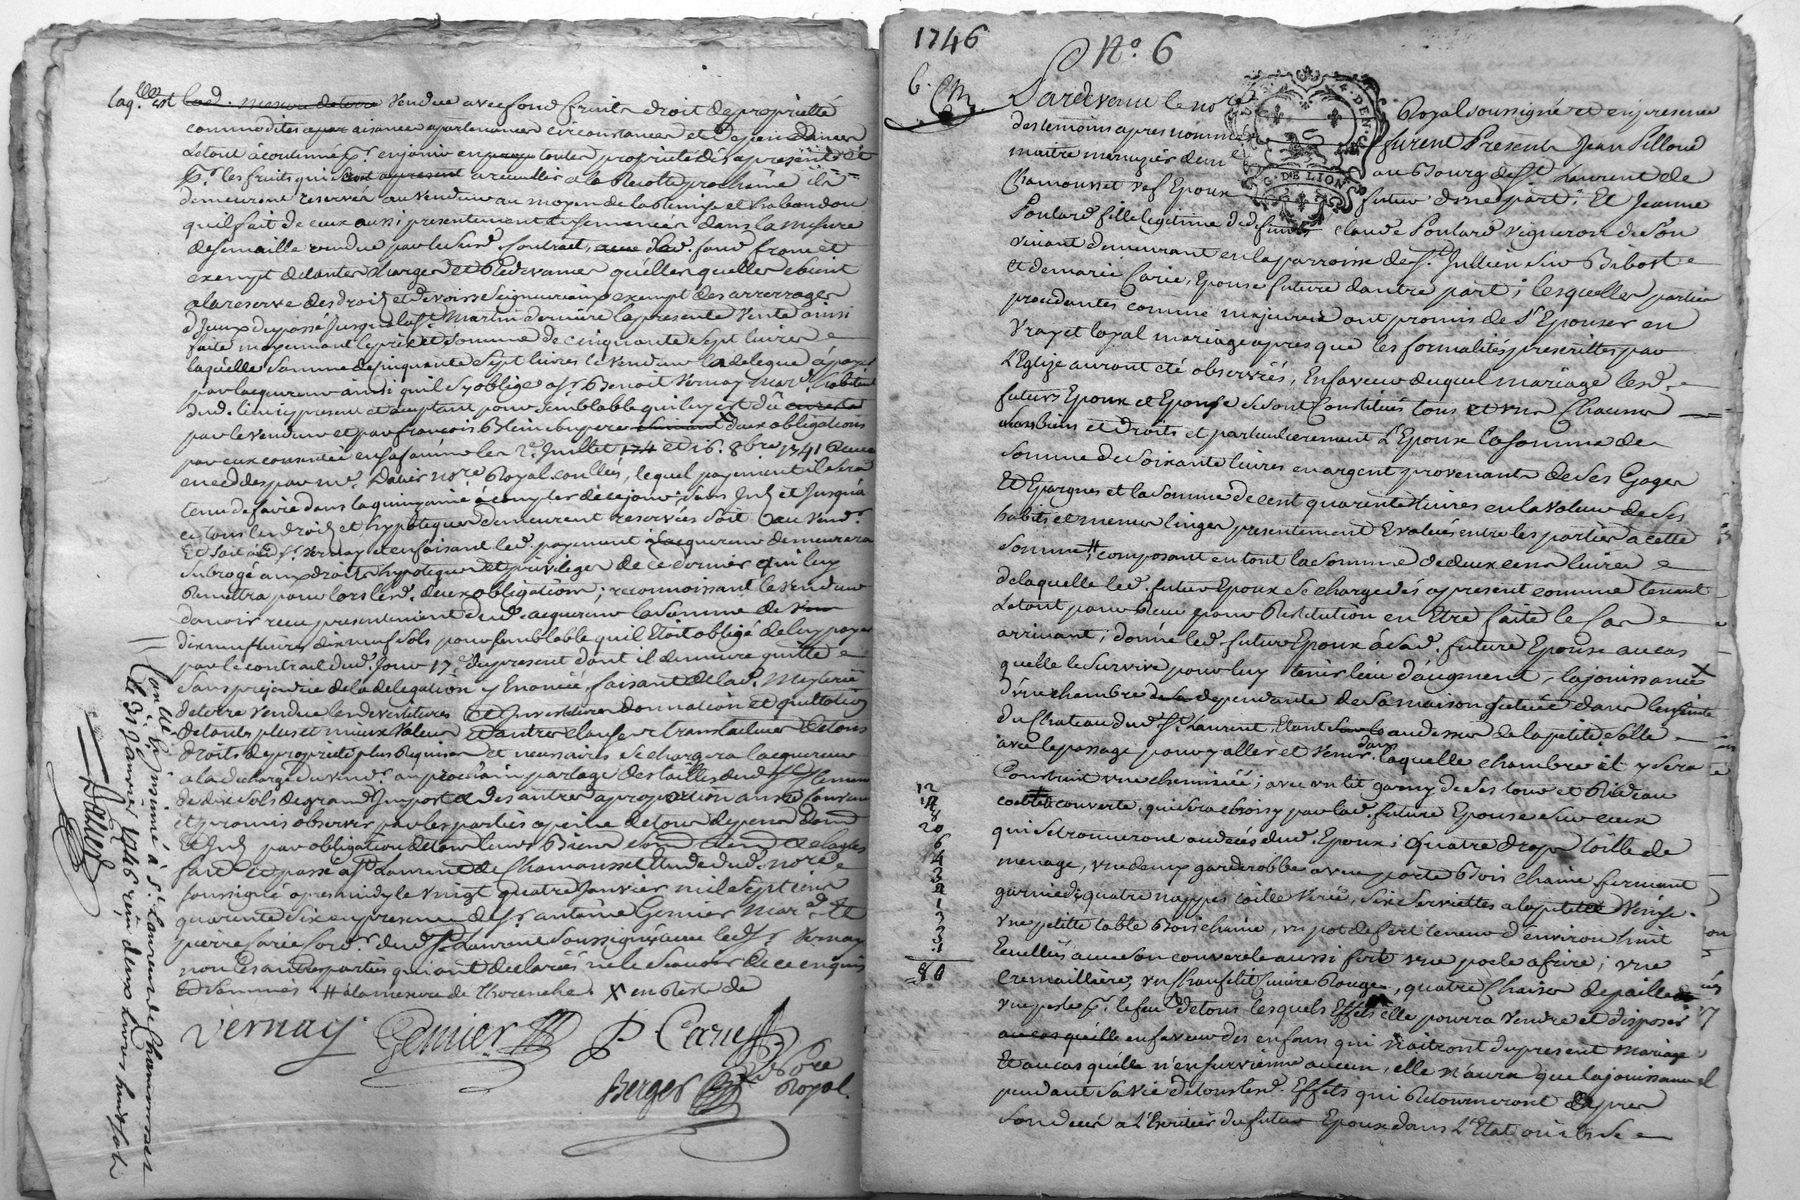 laq.lle est lad. mesure de terre vendue avec fond fruits droit de proprietté
commodités aisances apartenances circonstances et dependances
Letout à coutume pr. en jouir en toutte proprieté dès apresent et
pr. les fruits qui sont apresent a recueillir a la Recolte prochaine ils
demeurent reservés au vendeur au moyen de la Remise et habandon
qu'il fait de ceux aussi presentement semencés dans la mesure
de semaille vendue par le susd. Contrait, franc et
exempt de toutes charges et Redevances quelles quelles soient
a la reserve des droits et devoirs Seigneuriaux exempt des arrerages
d'Iceux du passé Jusqu'a la St. Martin derniere la presente Vente ainsi
faite moyennant le prix et somme de cinquante sept livres
laquelle somme de cinquante sept livres le vendeur a delegué à payer
par lacquereur ainsi qu'il s'y oblige a sr. Benoit Vernay Mard. habitant
dud. lieu ici present et aceptant pour semblable qui luy est dû
par le vendeur et par françois Blein beupere deux obligations
par eux consentie en sa faveur les 2e. Juillet 174 et 16. 8bre 1741
receües par me. Dalier nore Royal lequel payement il sera
tenu de faire dans la quinzaine à compter de ce jour, sans Int. et Jusqu'à
ce tous les droits et hypoteques demeurent reservées soit au vend.r
Et soit aud. sr. Vernay et en faisant led. payement lacquereur demeurera
subrogé aux droits hypoteques et privileges de ce dernier qui luy
Remettra pour lors lesd. deux obligations; reconnoissant le vendeur
d'avoir reçu presentement dud. acquereur la somme de
dix neuf livres dix neuf sols pour semblable qu'il etoit obligé de luy payer
par le contrait dud. Jour 17e. du present dont il demeure quitte
Sans prejudice de la delegation y Enoncée faisant de lad. Mesure
de terre vendue les devestitures et Investitures donnation et quittation
de touts plus et mieux valeur et autres clauses translatives de tous
droits de proprieté plus Requises et necessaires se chargera lacquereur
a la decharge du vend.r au prochain partage des tailles dud. St. Clement
de dix sols de grand Import et des autres a proportion ainsi convenu
et promis observer par les parties a peine de tous depens dom.
et Int. par obligation de tous leurs Biens
fait et passé a St. Laurent de Chamousset Etude dud. nore
soussigné apres midy le vingt quatre Janvier mil sept cens
quarente six en presence de sr. antoine Genier Mard. Et
pierre Carie cord.r dud. St. Laurent soussignés avec led. sr. Vernay
non les autres parties qui ont declarées ne le scavoir de ce enquis
et sommés. # a la mesure de Thorenche. X en reste de
Vernay. Genier P. Carie
Berger Nore Royal.
Conllé & Insinué à St. Laurent de Chamousset
le 31 Janvier 1746 reçu douze livres huit sols
Dalier
1746
No. 6
6. Cm.
Pardevant le nore Royal soussigné et en presence
des temoins apres nommés furent Presents Jean Pilloud
maitre menuzier demt au Bourg de St. Laurent de
Chamousset vef Epoux futur d'une part; Et Jeanne
Poulard fille legitime de defunt claude Poulard vigneron de son
vivant demeurant en la parroisse de St. Jullien sur Bibost
Et de marie Carie, Epouse future d'autre part; lesquelles parties
procedantes comme majeures ont promis de s'Epouser en
vray et loyal mariage apres que les formalités prescrittes par
l'Eglize auront été observées, En faveur duquel mariage lesd.
futurs Epoux et Epouse se sont constitués tous et uns Chacuns
leurs biens et droits et particulierement l'Epouse la somme de
somme de soixante livres en argent provenante de ses Gages
Et Epargnes et la somme de cent quarente livres en la valeur de ses
habits et menus linges presentement Evalués entre les parties à cette
somme, # composant en tout la somme de deux cens livres
de laquelle led. futur Epoux se charge dès apresent comme tenant
Letout pour Reçu pour Restitution en Etre faite le cas
arrivant; donne led. futur Epoux à lad. future Epouse au cas
quelle le survive pour luy tenir lieu d'augment, la jouissance X
d'une chambre dependante de sa maison scituée dans l'enceinte
du Chateau dud. St. Laurent, Etant au dessus de la petite Salle
avec le passage pour y aller et venir, dans laquelle chambre il y sera
Construit une cheminée; avec un lit garny de ses tour et Rideau
et couverte, qui sera choisy par lad. future Epouse sur ceux
qui se trouveront au decés dud. Epoux; Quatre draps toille de
menage, une deux garderobbe a une porte Bois chaine fermant
garnie de quatre nappes toille Verie, six serviettes a la petite Venise.
une petite table Bois chaine, un pot de fert teneur d'environ huit
Ecuelles avec son couvercle aussi fert une poele a frire; une
cremaillière, un chauflit cuivre Rouge, quatre Chaises de paille
une pelle pr. le feu, de tous lesquels Effets elle pourra vendre et disposer
qu'elle en faveur des enfans qui naitront du present mariage
Et au cas qu'elle n'en survienne aucun, elle n'aura que la jouissance
pendant sa vie de tous lesd. Effets qui Retourneront Après
son decés a l'heritier du futur Epoux dans l'Etat ou ils se
12
18
20
6
4
3
2
1
3
80